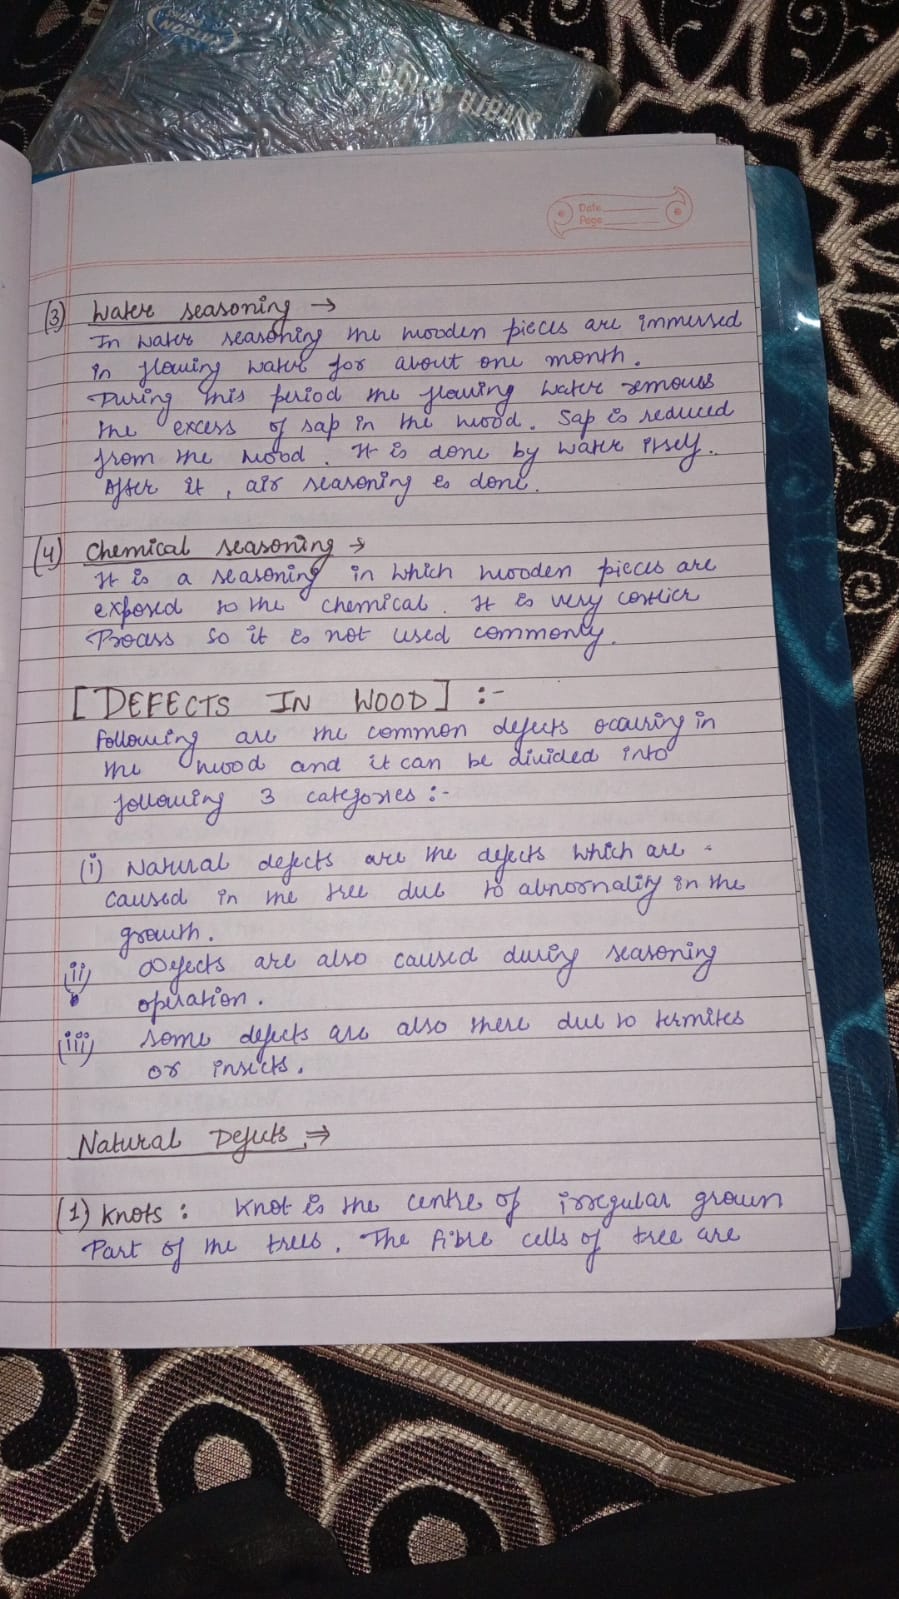 Date
Page
(3) Water seasoning →
In water seasoning the wooden pieces are immersed
in flowing water for about one month.
During this period the flowing water removes
the excess of sap in the wood. Sap is reduced
from the wood. It is done by water itself.
After it, air seasoning is done.
(4) Chemical seasoning →
It is a seasoning in which wooden pieces are
exposed to the chemical. It is very costlier
Process so it is not used commonly.
[DEFECTS IN WOOD] :-
Following are the common defects occuring in
the wood and it can be divided into
following 3 categories :-
(i) Natural defects are the defects which are
caused in the tree due to abnormality in the
growth.
(ii) Defects are also caused during seasoning
operation.
(iii) Some defects are also there due to termites
or insects.
Natural Defects ⇒
(1) Knots : Knot is the centre of irregular grown
Part of the trees. The fibre cells of tree are